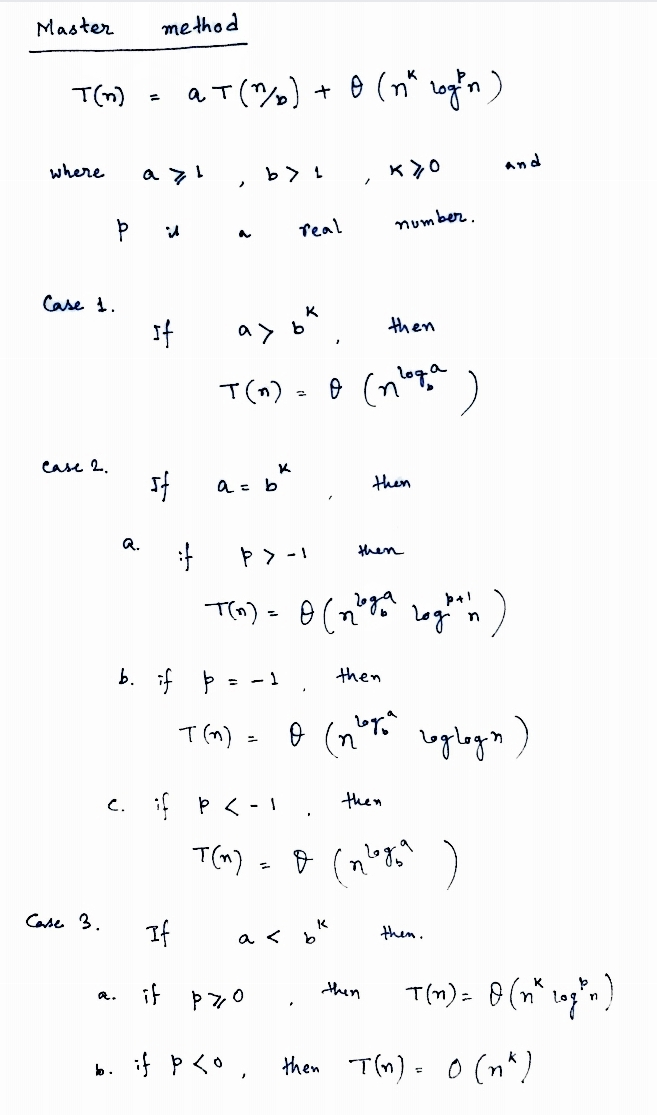 Master method
T(n) = a T(n/b) + θ (n^k log^p n)
where a ⩾ 1 , b > 1 , k ⩾ 0 and
p is a real number.
Case 1.
If a > b^k , then
T(n) = θ (n^log_b a)
Case 2.
If a = b^k , then
a. if p > -1 then
T(n) = θ (n^log_b a log^p+1 n)
b. if p = -1 , then
T(n) = θ (n^log_b a log log n)
c. if p < -1 , then
T(n) = θ (n^log_b a)
Case 3. If a < b^k then.
a. if p ⩾ 0 , then T(n) = θ (n^k log^p n)
b. if p < 0 , then T(n) = O (n^k)